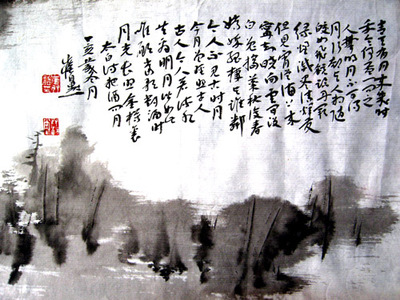 青天有月来几时
我今停杯一问之
人攀明月不可得
月行却与人相随
皎如飞镜临丹阙
绿烟灭尽清辉发
但见宵从海上来
宁知晓向云间没
白兔捣药秋复春
嫦娥孤栖与谁邻
今人不见古时月
今月曾经照古人
古人今人若流水
共看明月皆如此
唯愿当歌对酒时
月光长照金樽里
太白诗把酒问月